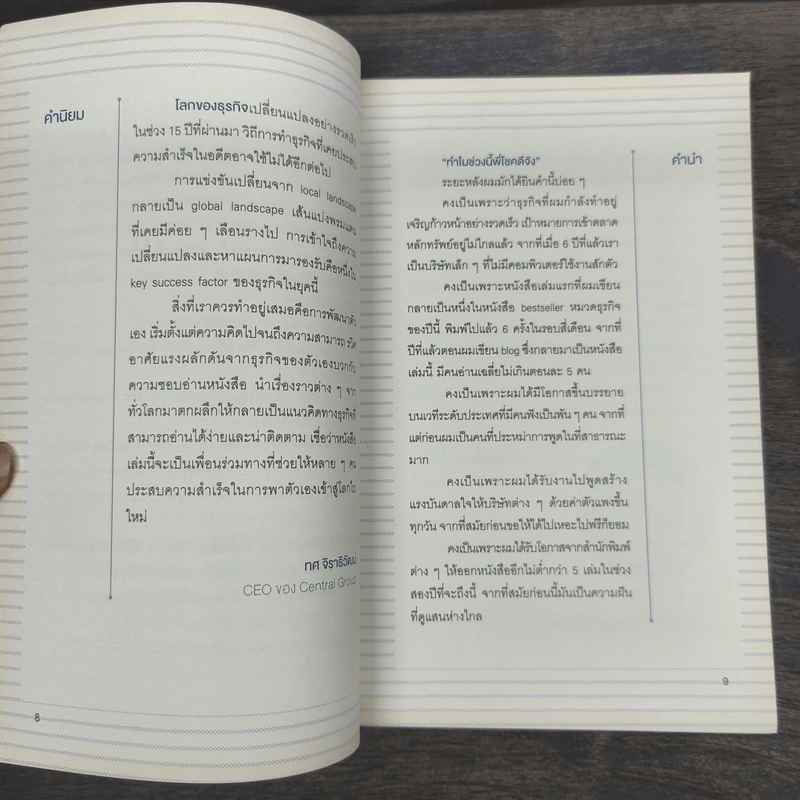 คำนิยม
โลกของธุรกิจเปลี่ยนแปลงอย่างรวดเร็ว
ในช่วง 15 ปีที่ผ่านมา วิถีการทำธุรกิจที่เคยประสบ
ความสำเร็จในอดีตอาจใช้ไม่ได้อีกต่อไป
การแข่งขันเปลี่ยนจาก local landscape
กลายเป็น global landscape เส้นแบ่งพรมแดน
ที่เคยมีค่อย ๆ เลือนรางไป การเข้าใจถึงความ
เปลี่ยนแปลงและหาแผนการมารองรับคือหนึ่งใน
key success factor ของธุรกิจในยุคนี้
สิ่งที่เราควรทำอยู่เสมอคือการพัฒนาตัว
เอง เริ่มตั้งแต่ความคิดไปจนถึงความสามารถ รวิศ
อาศัยแรงผลักดันจากธุรกิจของตัวเองบวกกับ
ความชอบอ่านหนังสือ นำเรื่องราวต่าง ๆ จาก
ทั่วโลกมาตกผลึกให้กลายเป็นแนวคิดทางธุรกิจที่
สามารถอ่านได้ง่ายและน่าติดตาม เชื่อว่าหนังสือ
เล่มนี้จะเป็นเพื่อนร่วมทางที่ช่วยให้หลาย ๆ คน
ประสบความสำเร็จในการพาตัวเองเข้าสู่โลกใบ
ใหม่
ทศ จิราธิวัฒน์
CEO ของ Central Group
8
คำนำ
"ทำไมช่วงนี้พี่โชคดีจัง"
ระยะหลังผมมักได้ยินคำนี้บ่อย ๆ
คงเป็นเพราะว่าธุรกิจที่ผมกำลังทำอยู่
เจริญก้าวหน้าอย่างรวดเร็ว เป้าหมายการเข้าตลาด
หลักทรัพย์อยู่ไม่ไกลแล้ว จากที่เมื่อ 6 ปีที่แล้วเรา
เป็นบริษัทเล็ก ๆ ที่ไม่มีคอมพิวเตอร์ใช้งานสักตัว
คงเป็นเพราะหนังสือเล่มแรกที่ผมเขียน
กลายเป็นหนึ่งในหนังสือ bestseller หมวดธุรกิจ
ของปีนี้ พิมพ์ไปแล้ว 6 ครั้งในรอบสี่เดือน จากที่
ปีที่แล้วตอนผมเขียน blog ซึ่งกลายมาเป็นหนังสือ
เล่มนี้ มีคนอ่านเฉลี่ยไม่เกินตอนละ 5 คน
คงเป็นเพราะผมได้มีโอกาสขึ้นบรรยาย
บนเวทีระดับประเทศที่มีคนฟังเป็นพัน ๆ คน จากที่
แต่ก่อนผมเป็นคนที่ประหม่าการพูดในที่สาธารณะ
มาก
คงเป็นเพราะผมได้รับงานไปพูดสร้าง
แรงบันดาลใจให้บริษัทต่าง ๆ ด้วยค่าตัวแพงขึ้น
ทุกวัน จากที่สมัยก่อนขอให้ได้ไปเหอะไปฟรีก็ยอม
คงเป็นเพราะผมได้รับโอกาสจากสำนักพิมพ์
ต่าง ๆ ให้ออกหนังสืออีกไม่ต่ำกว่า 5 เล่มในช่วง
สองปีที่จะถึงนี้ จากที่สมัยก่อนนี้มันเป็นความฝัน
ที่ดูแสนห่างไกล
9